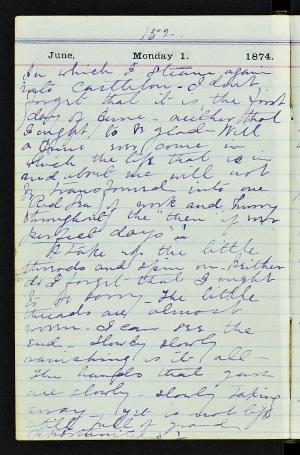 152.
June, Monday 1. 1874.
In which I steam again
into Castleton. I don't
forget that it is the first
day of June - neither that
I ought to be glad. Will
a June ever come in
which the life that is in
and about me will not
be transformed into one
Red Sea of work and hurry
throughout the "then if ever
perfect days"?
I take up the little
threads and spin on. Neither
do I forget that I ought
to be sorry. The little
threads are almost
worn. I can see the
end. Slowly slowly
vanishing is it all -
The hands that gave
are slowly - slowly taking
away - yet is not life
still full of grand
opportunities?